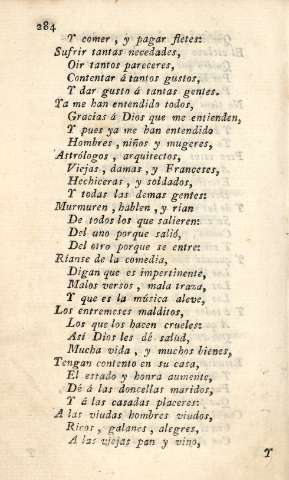 284
Y comer, y pagar fletes:
Sufrir tantas necedades,
Oir tantos pareceres,
Contentar á tantos gustos,
Y dar gusto á tantas gentes.
Ya me han entendido todos,
Gracias á Dios que me entienden,
Y pues ya me han entendido
Hombres, niños y mugeres,
Astrólogos, arquitectos,
Viejas, damas, y Franceses,
Hechiceras, y soldados,
Y todas las demas gentes:
Murmuren, hablen, y rian
De todos los que salieren:
Del uno porque salió,
Del otro porque se entre:
Rianse de la comedia,
Digan que es impertinente,
Malos versos, mala traza,
Y que es la música aleve,
Los entremeses malditos,
Los que los hacen crueles:
Asi Dios les dé salud,
Mucha vida, y muchos bienes,
Tengan contento en su casa,
El estado y honra aumente,
Dé á las doncellas maridos,
Y á las casadas placeres:
A las viudas hombres viudos,
Ricos, galanes, alegres,
A las viejas pan y vino,
Y